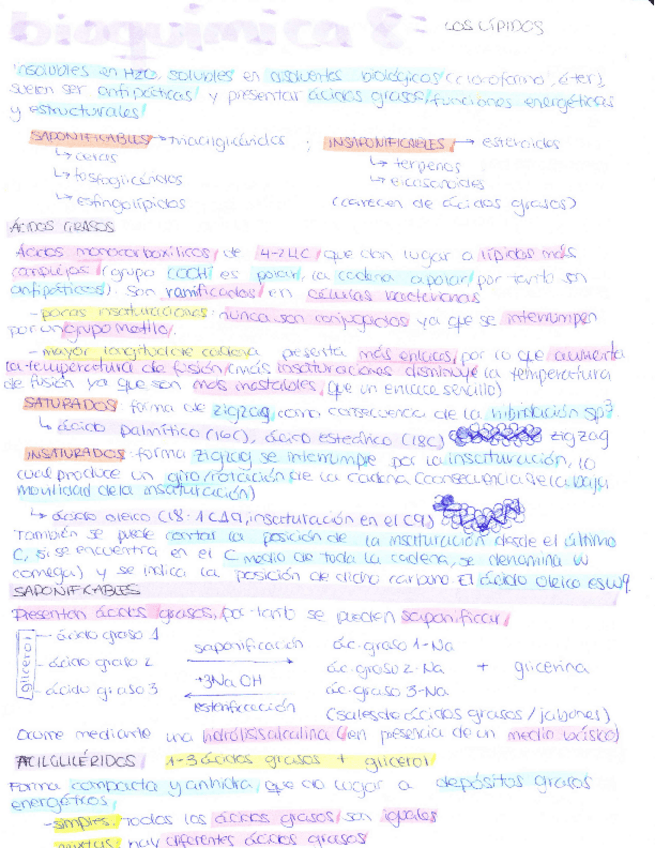 bioquímica 8: LOS LÍPIDOS
insolubles en H2O, solubles en disolventes biológicos (cloroformo, éter),
suelen ser anfipáticas y presentar ácidos grasos/funciones energéticas
y estructurales
SAPONIFICABLES → triacilglicéridos ; INSAPONIFICABLES → esteroides
↳ ceras ↳ terpenos
↳ fosfoglicéridos ↳ eicosanoides
↳ esfingolípidos (carecen de ácidos grasos)
ÁCIDOS GRASOS
Ácidos monocarboxílicos, de 4-24C, que dan lugar a lípidos más
complejos (grupo COOH es polar, la cadena apolar, por tanto son
anfipáticos). Son ramificados en células bacterianas
- pocas insaturaciones: nunca son conjugados ya que se interrumpen
por un grupo metilo.
- mayor longitud de cadena presenta más enlaces, por lo que aumenta
la temperatura de fusión (más insaturaciones disminuye la temperatura
de fusión ya que son más inestables, que un enlace sencillo)
SATURADOS: forma de zigzag, como consecuencia de la hibridación sp3
↳ ácido palmítico (16C), ácido esteárico (18C) zigzag
INSATURADOS: forma zigzag se interrumpe por la insaturación, lo
cual produce un giro/rotación de la cadena (consecuencia de la baja
movilidad de la insaturación)
↳ ácido oleico (18:1 CΔ9, insaturación en el C9)
También se puede contar la posición de la insaturación desde el último
C, si se encuentra en el C medio de toda la cadena, se denomina w
(omega) y se indica la posición de dicho carbono. El ácido oleico es w9.
SAPONIFICABLES
Presentan ácidos grasos, por tanto se pueden saponificar
glicerol — ácido graso 1 saponificación ác. graso 1-Na
— ácido graso 2 +3NaOH ác. graso 2-Na + glicerina
— ácido graso 3 esterificación ác. graso 3-Na
(sales de ácidos grasos / jabones)
Ocurre mediante una hidrólisis alcalina (en presencia de un medio básico)
ACILGLICÉRIDOS 1-3 ácidos grasos + glicerol
Forma compacta y anhidra, que da lugar a depósitos grasos
energéticos
- simples: todos los ácidos grasos son iguales
mixtas: hay diferentes ácidos grasos